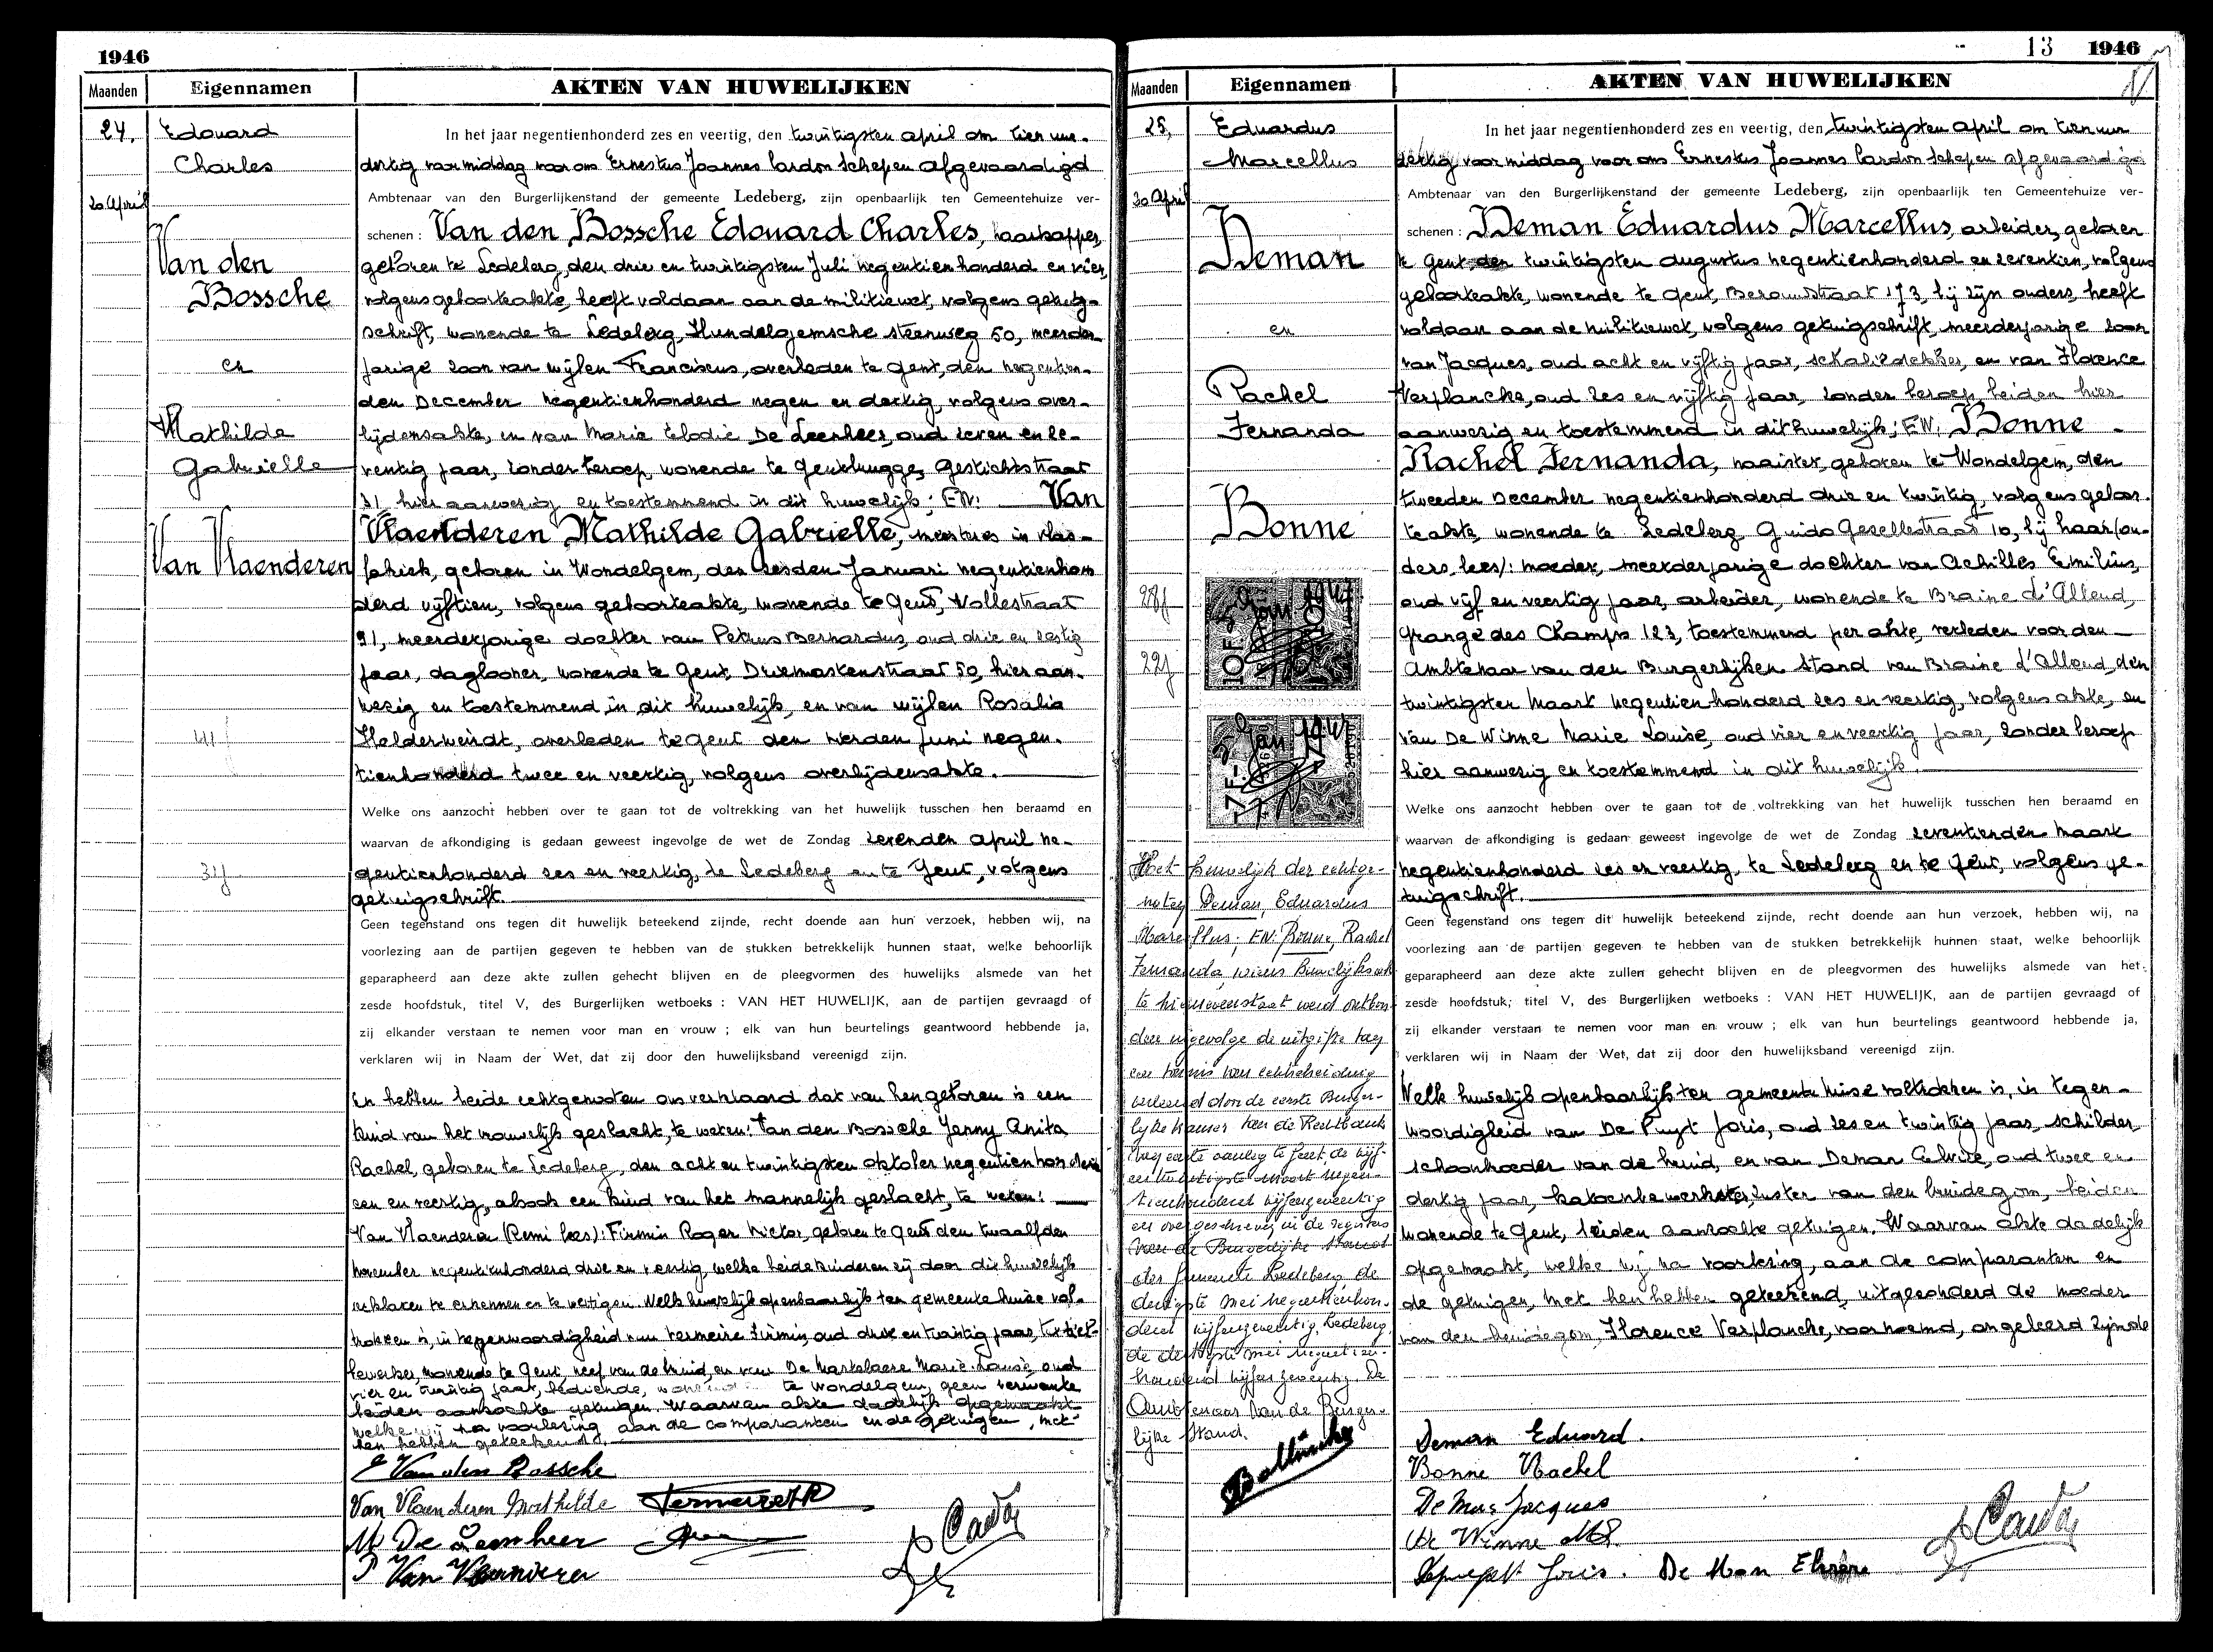 1946
Maanden
Eigennamen
AKTEN VAN HUWELIJKEN
24.
20 April
Edouard
Charles
Van den
Bossche
en
Mathilde
Gabrielle
Van Vlaenderen
41j
31j
In het jaar negentienhonderd zes en veertig, den twintigsten april om tien uur
dertig voormiddag voor ons Ernestus Joannes Cardon Schepen afgevaardigd
Ambtenaar van den Burgerlijkenstand der gemeente Ledeberg, zijn openbaarlijk ten Gemeentehuize ver-
schenen : Van den Bossche Edouard Charles, haarkapper,
geboren te Ledeberg, den drie en twintigsten Juli negentienhonderd en vier,
volgens geboorteakte, heeft voldaan aan de militiewet, volgens getuig-
schrift, wonende te Ledeberg, Hundelgemsche steenweg 50, meerder-
jarige zoon van wijlen Franciscus, overleden te Gent, den negentien-
den December negentienhonderd negen en dertig, volgens over-
lijdensakte, en van Marie Elodie De Leenheer, oud zeven en ze-
ventig jaar, zonder beroep, wonende te Gentbrugge, Gestichtstraat
31, hier aanwezig en toestemmend in dit huwelijk; EN: Van
Vlaenderen Mathilde Gabrielle, meesteres in vlas-
fabriek, geboren in Wondelgem, den zesden Januari negentienhon
derd vijftien, volgens geboorteakte, wonende te Gent, Wollestraat
91, meerderjarige dochter van Petrus Bernardus, oud drie en zestig
jaar, daglooner, wonende te Gent, Driemastenstraat 50, hier aan-
wezig en toestemmend in dit huwelijk, en van wijlen Rosalia
Helderweirdt, overleden te Gent den vierden Juni negen-
tienhonderd twee en veertig, volgens overlijdensakte.
Welke ons aanzocht hebben over te gaan tot de voltrekking van het huwelijk tusschen hen beraamd en
waarvan de afkondiging is gedaan geweest ingevolge de wet de Zondag zevenden april ne-
gentienhonderd zes en veertig, te Ledeberg en te Gent, volgens
getuigschrift.
Geen tegenstand ons tegen dit huwelijk beteekend zijnde, recht doende aan hun verzoek, hebben wij, na
voorlezing aan de partijen gegeven te hebben van de stukken betrekkelijk hunnen staat, welke behoorlijk
geparapheerd aan deze akte zullen gehecht blijven en de pleegvormen des huwelijks alsmede van het
zesde hoofdstuk, titel V, des Burgerlijken wetboeks : VAN HET HUWELIJK, aan de partijen gevraagd of
zij elkander verstaan te nemen voor man en vrouw ; elk van hun beurtelings geantwoord hebbende ja,
verklaren wij in Naam der Wet, dat zij door den huwelijksband vereenigd zijn.
En hebben beide echtgenooten ons verklaard dat van hen geboren is een
kind van het vrouwelijk geslacht, te weten: Van den Bossche Jenny Anita
Rachel, geboren te Ledeberg, den acht en twintigsten oktober negentienhonderd
een en veertig, alsook een kind van het mannelijk geslacht, te weten:
Van Vlaenderen (Remi lees): Firmin Roger Victor, geboren te Gent den twaalfden
november negentienhonderd drie en veertig, welke beide kinderen zij door dit huwelijk
verklaren te erkennen en te wettigen. Welk huwelijk openbaarlijk ten gemeente huize vol-
trokken is, in tegenwoordigheid van Vermeire Firmin, oud drie en twintig jaar, textiel-
bewerker, wonende te Gent, neef van de bruid, en van De Markelaere Marie-Louise, oud
vier en twintig jaar, bediende, wonende te Wondelgem, geen verwante
beiden aanzochte getuigen. Waarvan akte dadelijk opgemaakt
welke wij na voorlezing aan de comparanten en de getuigen, met
hen hebben geteekend.
E Van den Bossche
Van Vlaenderen Mathilde
M De Leenheer
P Van Vlaenderen
13 1946
Maanden
Eigennamen
AKTEN VAN HUWELIJKEN
25,
20 April
Eduardus
Marcellus
Deman
en
Rachel
Fernanda
Bonne
28j
22j
10F
Jan 1947
7F
Jan 1947
Het huwelijk der echtge-
noten Deman, Eduardus
Marcellus. EN: Bonne, Rachel
Fernanda, wiens huwelijksak
te hiernevenstaat werd ontbon-
den ingevolge de uitgifte van
een vonnis van echtscheiding
verleend door de eerste Burger-
lijke kamer van de Rechtbank
van eerste aanleg te Gent, de vijf-
en twintigste maart negen-
tienhonderd vijfenzeventig
en overgeschreven in de registers
van de Burgerlijke stand
der gemeente Ledeberg, de
dertigste mei negentienhon-
derd vijfenzeventig. Ledeberg,
de dertigste mei negentien-
honderd vijfenzeventig. De
Ambtenaar van de Burger-
lijke Stand.
In het jaar negentienhonderd zes en veertig, den twintigsten april om tien uur
dertig voormiddag voor ons Ernestus Joannes Cardon Schepen afgevaardigd
Ambtenaar van den Burgerlijkenstand der gemeente Ledeberg, zijn openbaarlijk ten Gemeentehuize ver-
schenen : Deman Eduardus Marcellus, arbeider, geboren
te Gent, den twintigsten augustus negentienhonderd en zeventien, volgens
geboorteakte, wonende te Gent, 173, bij zijn ouders, heeft
voldaan aan de militiewet, volgens getuigschrift, meerderjarige zoon
van Jacques, oud acht en vijftig jaar, schaliedekker, en van Florence
Verplancke, oud zes en vijftig jaar, zonder beroep, beiden hier
aanwezig en toestemmend in dit huwelijk; EN: Bonne
Rachel Fernanda, naaister, geboren te Wondelgem, den
tweeden December negentienhonderd drie en twintig, volgens geboor-
teakte, wonende te Ledeberg Guido Gezellestraat 10, bij haar (ou-
ders, lees): moeder, meerderjarige dochter van Achilles Emilius,
oud vijf en veertig jaar, arbeider, wonende te Braine d'Alleud,
Grange des Champs 123, toestemmend per akte, verleden voor den
Ambtenaar van den Burgerlijken Stand van Braine d'Alleud, den
twintigsten Maart negentienhonderd zes en veertig, volgens akte, en
van De Winne Marie Louise, oud vier en veertig jaar, zonder beroep
hier aanwezig en toestemmend in dit huwelijk.
Welke ons aanzocht hebben over te gaan tot de voltrekking van het huwelijk tusschen hen beraamd en
waarvan de afkondiging is gedaan geweest ingevolge de wet de Zondag zeventienden Maart
negentienhonderd zes en veertig, te Ledeberg en te Gent, volgens ge-
tuigschrift.
Geen tegenstand ons tegen dit huwelijk beteekend zijnde, recht doende aan hun verzoek, hebben wij, na
voorlezing aan de partijen gegeven te hebben van de stukken betrekkelijk hunnen staat, welke behoorlijk
geparapheerd aan deze akte zullen gehecht blijven en de pleegvormen des huwelijks alsmede van het
zesde hoofdstuk, titel V, des Burgerlijken wetboeks : VAN HET HUWELIJK, aan de partijen gevraagd of
zij elkander verstaan te nemen voor man en vrouw ; elk van hun beurtelings geantwoord hebbende ja,
verklaren wij in Naam der Wet, dat zij door den huwelijksband vereenigd zijn.
Welk huwelijk openbaarlijk ten gemeente huize voltrokken is, in tegen-
woordigheid van De Puyt Joris, oud zes en twintig jaar, schilder
schoonbroeder van de bruid, en van Deman Elvire, oud twee en
dertig jaar, katoenbewerkster, zuster van den bruidegom, beiden
wonende te Gent, beiden aanzochte getuigen. Waarvan akte dadelijk
opgemaakt, welke wij na voorlezing, aan de comparanten en
de getuigen, met hen hebben geteekend, uitgezonderd de moeder
van den bruidegom, Florence Verplancke, voornoemd, ongeleerd zijnde
Deman Eduard.
Bonne Rachel
De Man Jacques
De Winne ML.
Joris. De Man Elvire